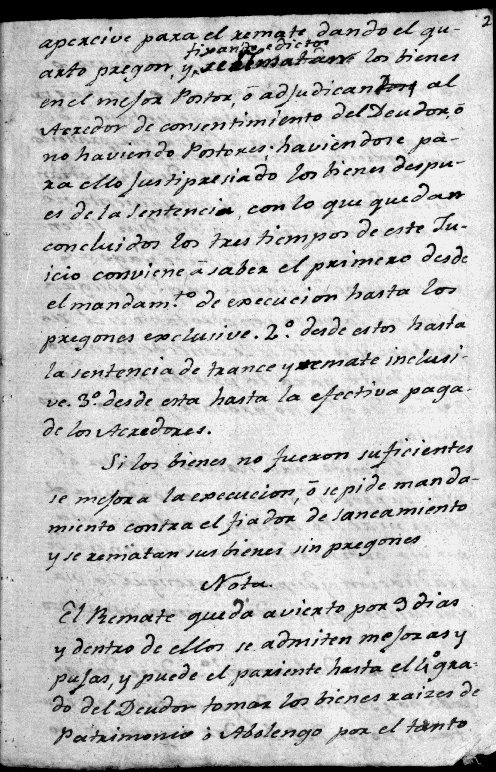 2
apercive para el remate, dando el qu-
fixando edictos
arto pregon, y rematan los bienes
en el mejor Postor, ó adjudicandolos al
Acredor de consentimiento del Deudor, ó
no haviendo Postores; haviendose pa-
ra ello Justipresiado los bienes despu-
es de la sentencia, con lo que quedan
concluidos los tres tiempos de este Ju-
icio conviene â saber el primero desde
el mandam.to de execucion hasta los
pregones exclusive. 2.º desde estos hasta
la sentencia de trance y remate inclusi-
ve. 3.º desde esta hasta la efectiva paga
de los Acredores.
Si los bienes no fueron suficientes
se mejora la execucion, ó se pide manda-
miento contra el fiador de saneamiento
y se rematan sus bienes sin pregones
Nota.
El Remate queda avierto por 9 dias
y dentro de ellos se admiten mejoras y
pujas, y puede el pariente hasta el 4.º gra-
do del Deudor tomar los bienes raizes de
Patrimonio ò Abolengo por el tanto